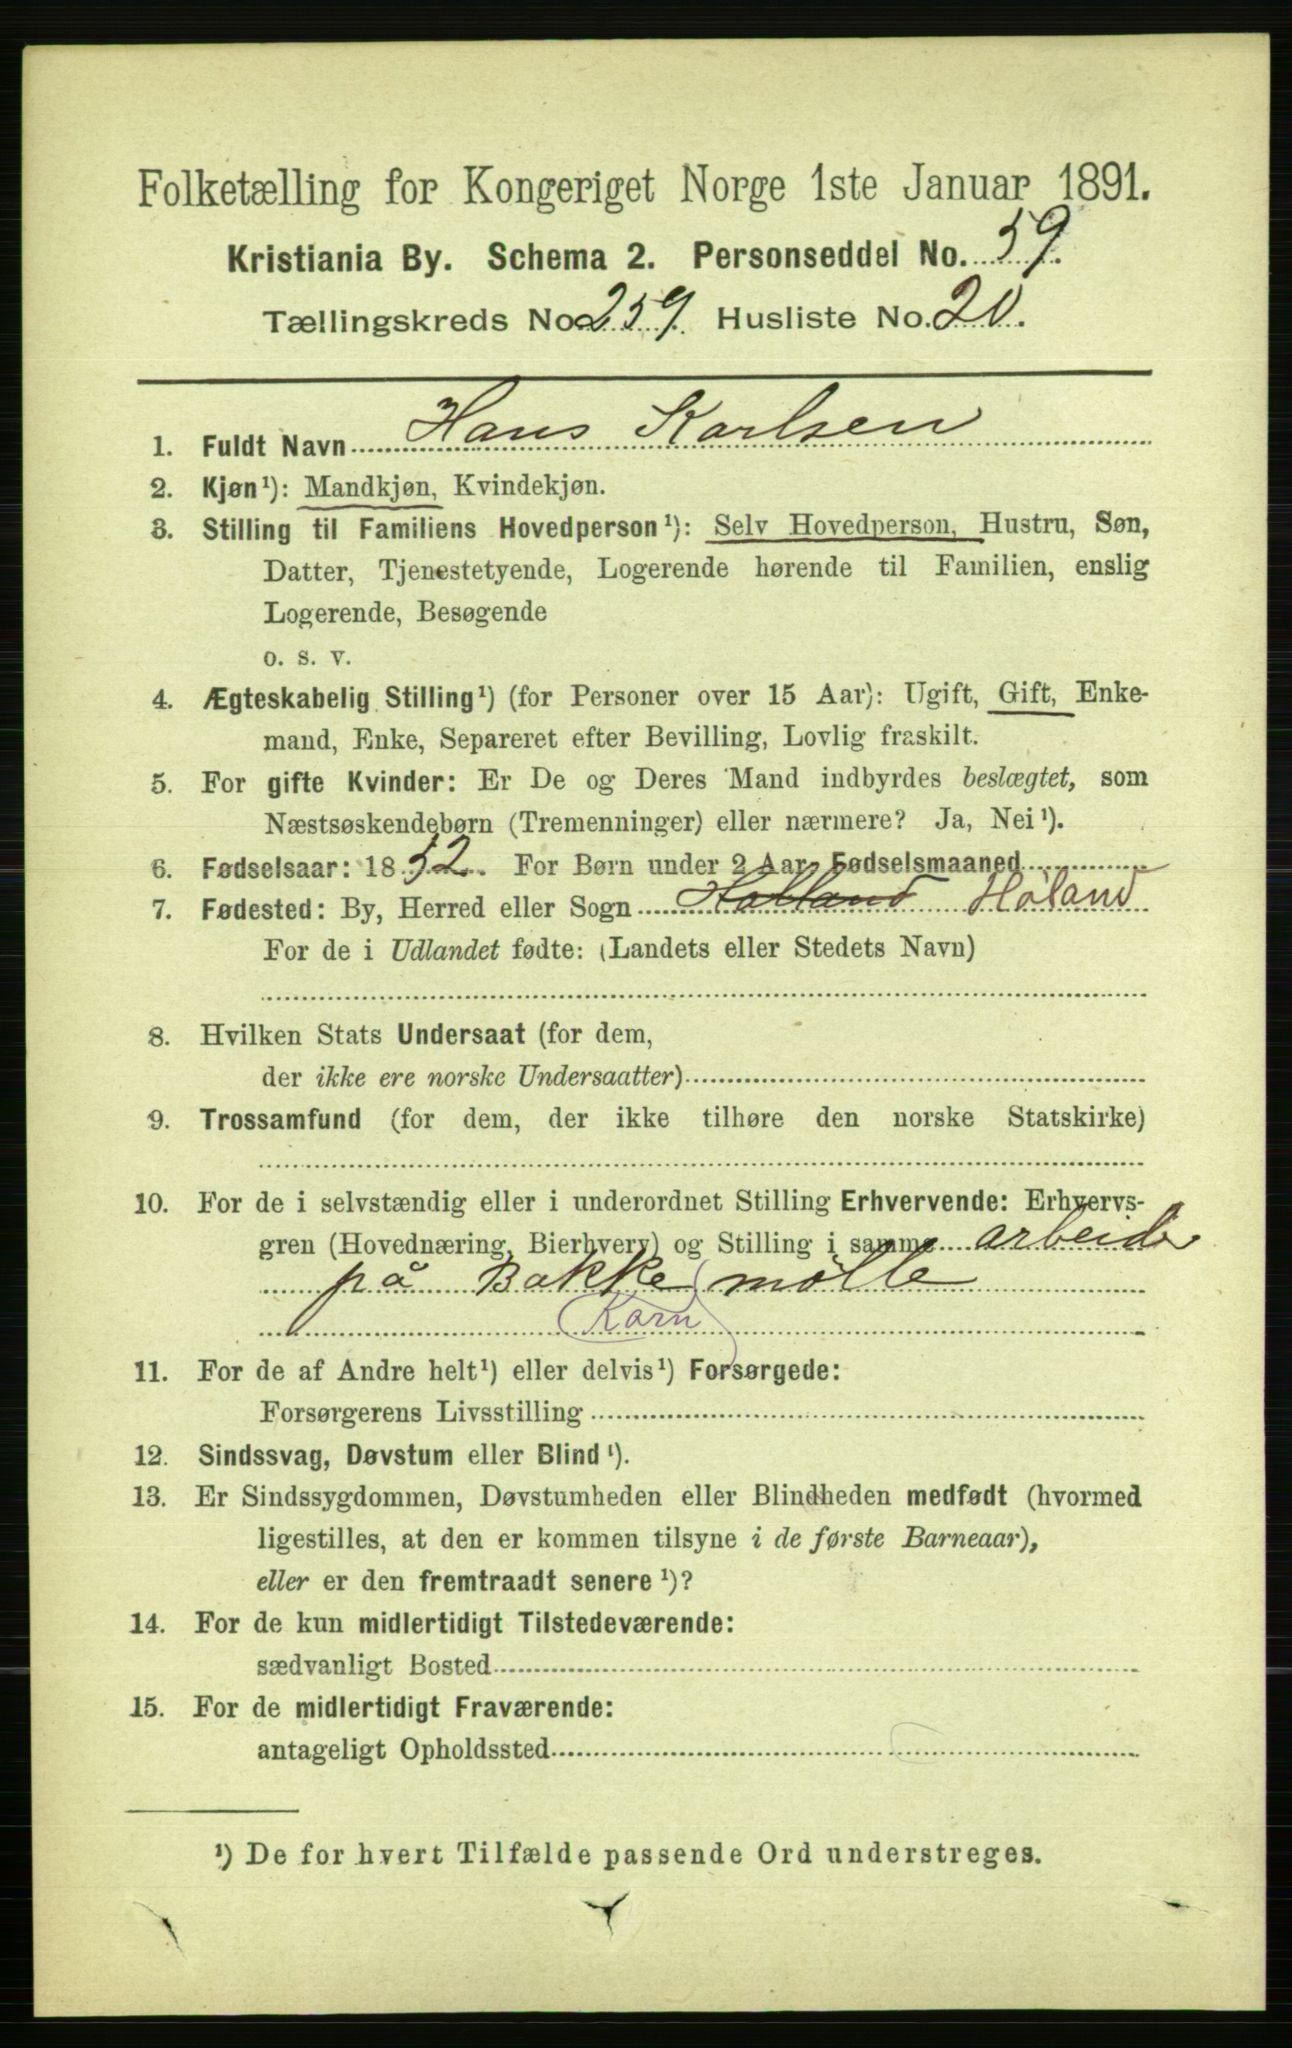 Folketælling for Kongeriget Norge 1ste Januar 1891.
Kristiania By. Schema 2. Personseddel No. 59.
Tællingskreds No. 259. Husliste No. 20.
1. Fuldt Navn Hans Karlsen
2. Kjøn¹): Mandkjøn, Kvindekjøn.
3. Stilling til Familiens Hovedperson¹): Selv Hovedperson, Hustru, Søn,
Datter, Tjenestetyende, Logerende hørende til Familien, enslig
Logerende, Besøgende
o. s. v.
4. Ægteskabelig Stilling¹) (for Personer over 15 Aar): Ugift, Gift, Enke-
mand, Enke, Separeret efter Bevilling, Lovlig fraskilt.
5. For gifte Kvinder: Er De og Deres Mand indbyrdes beslægtet, som
Næstsøskendebørn (Tremenninger) eller nærmere? Ja, Nei¹).
6. Fødselsaar: 1852. For Børn under 2 Aar Fødselsmaaned
7. Fødested: By, Herred eller Sogn Holland Høland
For de i Udlandet fødte: (Landets eller Stedets Navn)
8. Hvilken Stats Undersaat (for dem,
der ikke ere norske Undersaatter)
9. Trossamfund (for dem, der ikke tilhøre den norske Statskirke)
10. For de i selvstændig eller i underordnet Stilling Erhvervende: Erhvervs-
gren (Hovednæring, Bierhverv) og Stilling i samme arbeider
på Bakke mølle
Korn
11. For de af Andre helt¹) eller delvis¹) Forsørgede:
Forsørgerens Livsstilling
12. Sindssvag, Døvstum eller Blind¹).
13. Er Sindssygdommen, Døvstumheden eller Blindheden medfødt (hvormed
ligestilles, at den er kommen tilsyne i de første Barneaar),
eller er den fremtraadt senere¹)?
14. For de kun midlertidigt Tilstedeværende:
sædvanligt Bosted
15. For de midlertidigt Fraværende:
antageligt Opholdssted
¹) De for hvert Tilfælde passende Ord understreges.